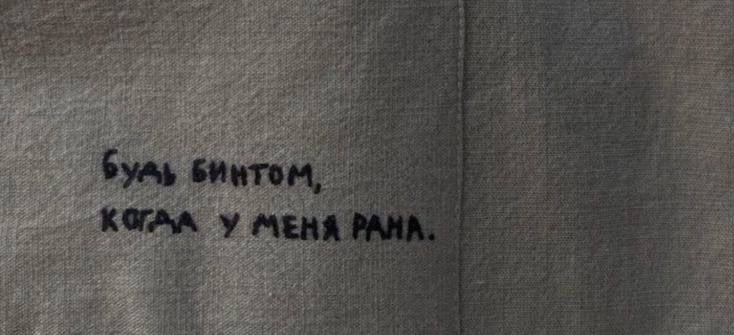 будь бинтом,
когда у меня рана.